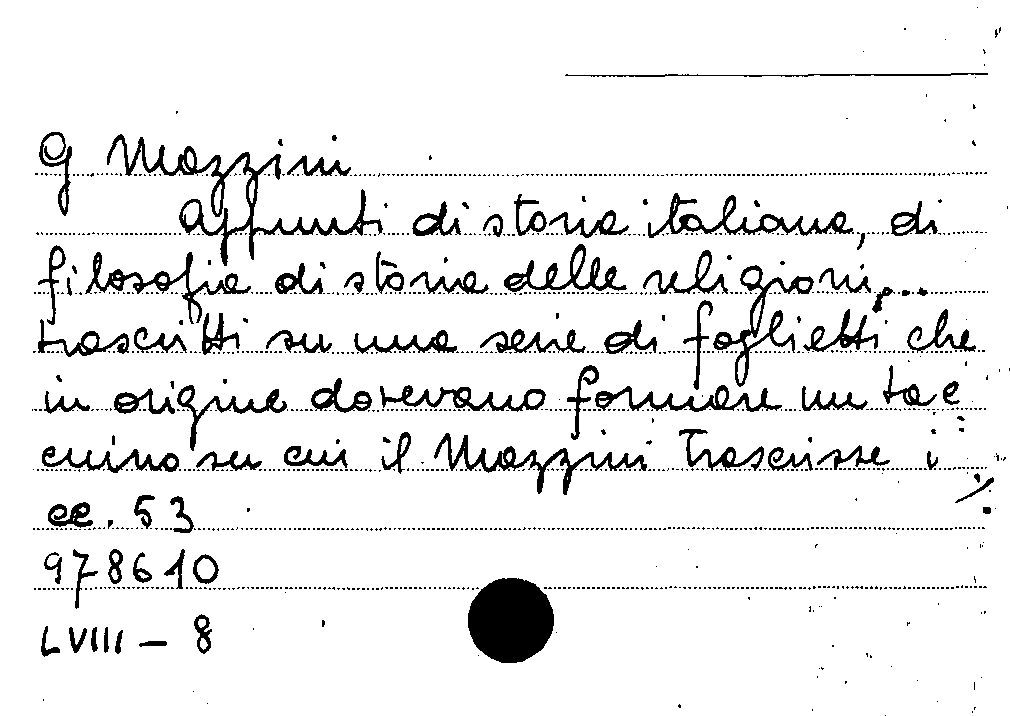 G. Mazzini
Appunti di storia italiana, di
filosofia di storia delle religioni,...
trascritti su una serie di foglietti che
in origine dovevano formare un tac
cuino su cui il Mazzini trascrisse i
cc. 53
978610
LVIII - 8